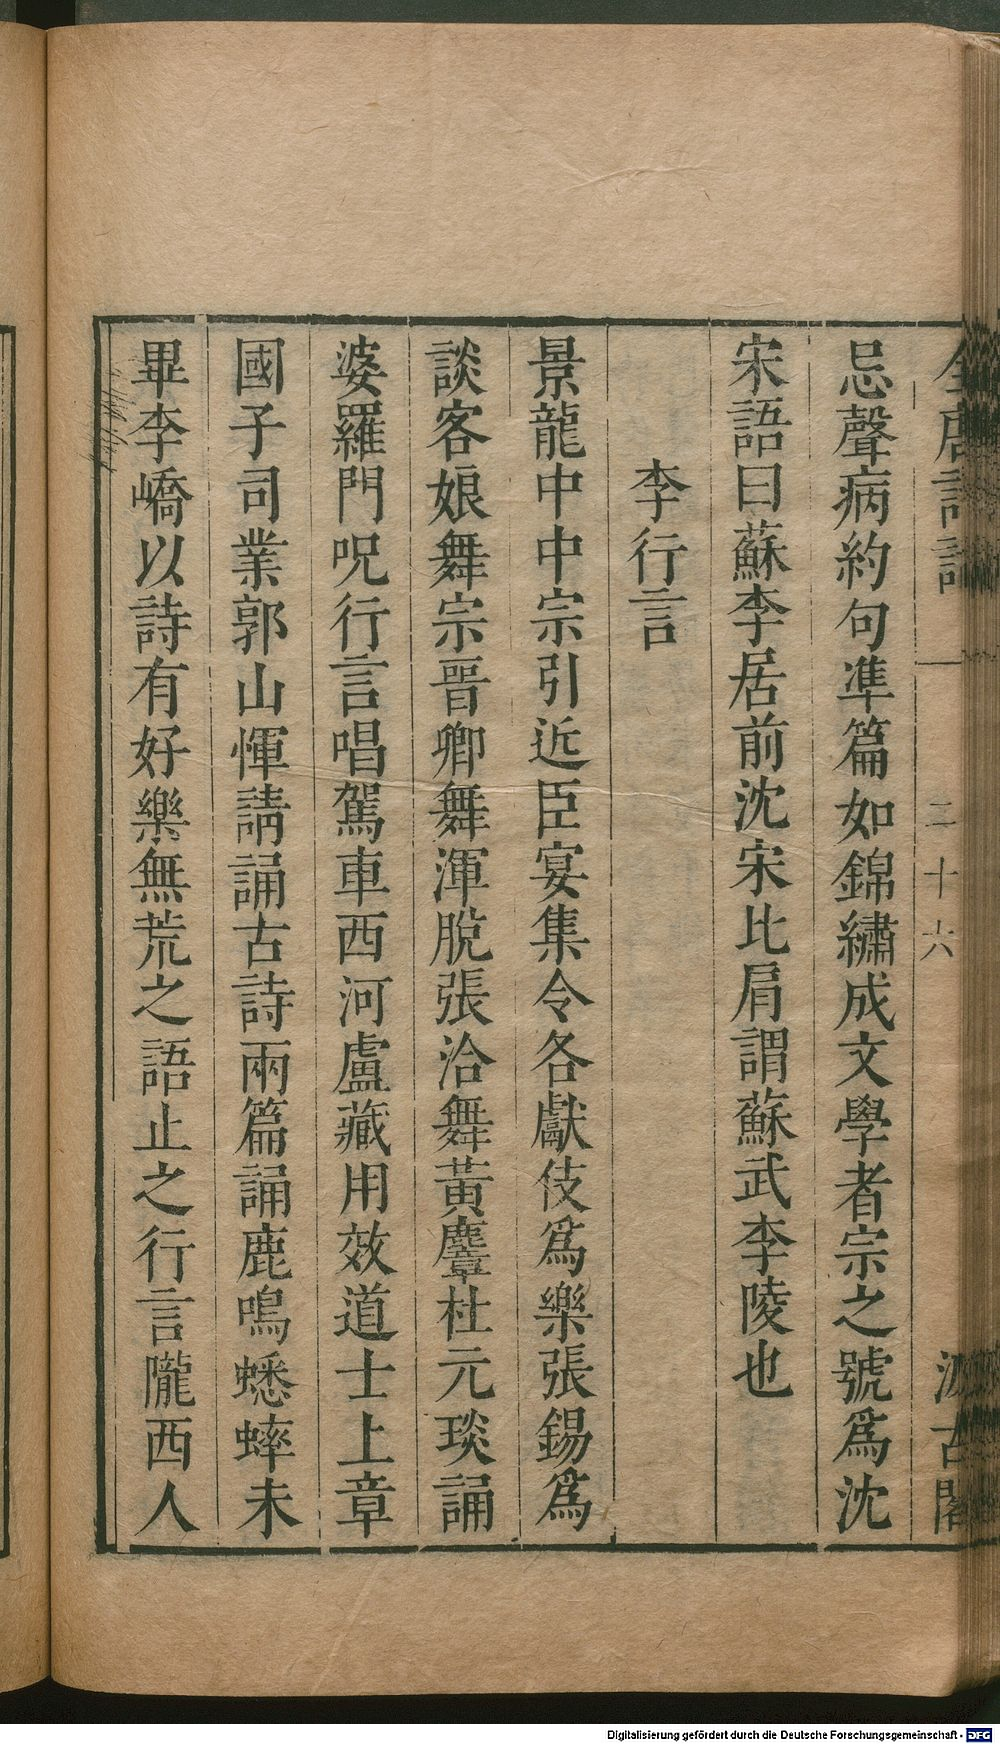 忌聲病約句準篇如錦繡成文學者宗之號爲沈
宋語曰蘇李居前沈宋比肩謂蘇武李陵也
李行言
景龍中中宗引近臣宴集令各獻伎爲樂張錫爲
談客娘舞宗晉卿舞渾脫張洽舞黃麞杜元琰誦
婆羅門呪行言唱駕車西河盧藏用效道士上章
國子司業郭山惲請誦古詩兩篇誦鹿鳴蟋蟀未
畢李嶠以詩有好樂無荒之語止之行言隴西人
全唐詩話
一
二十六
汲古閣
Digitalisierung gefördert durch die Deutsche Forschungsgemeinschaft - DFG